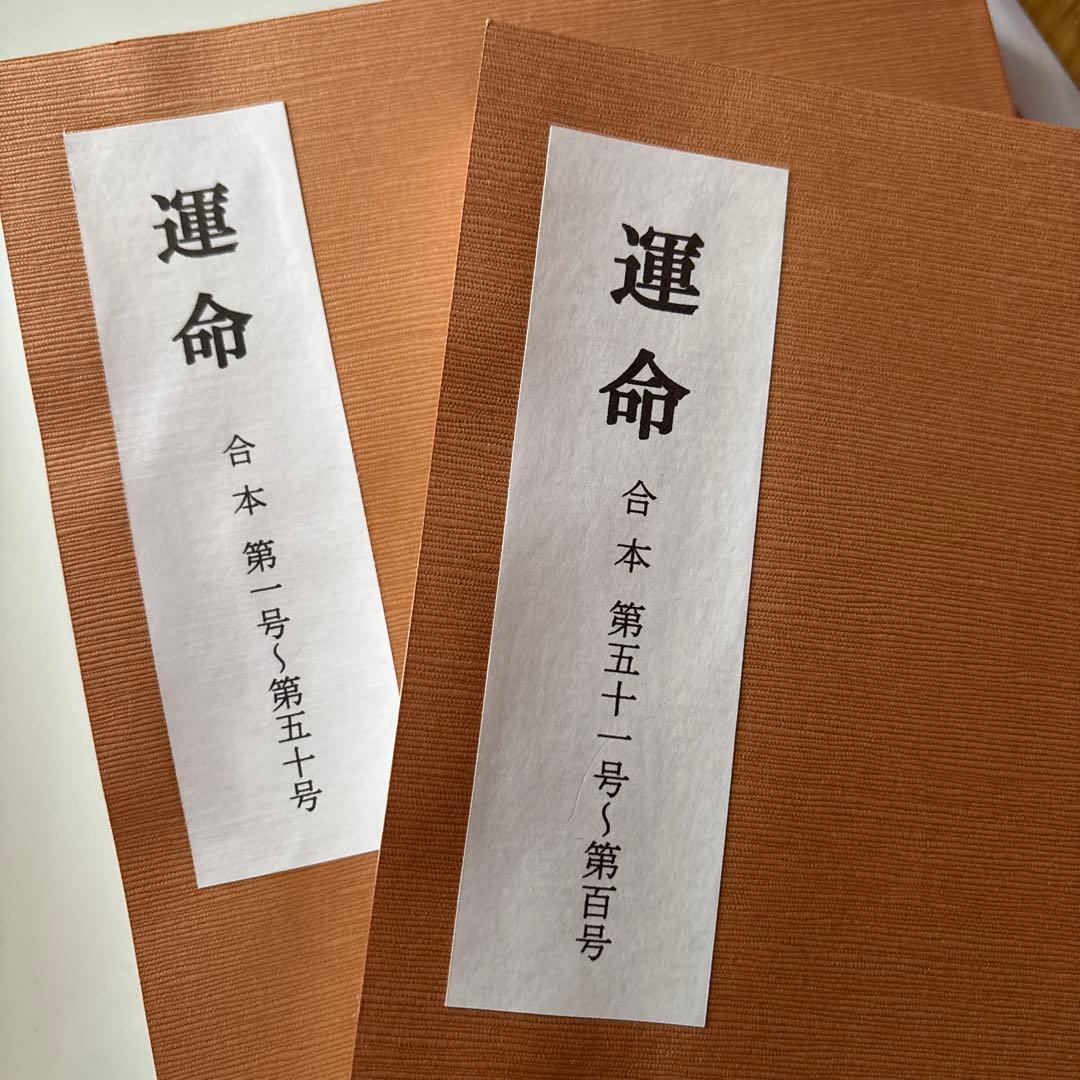 運命
合本 第一号〜第五十号
運命
合本 第五十一号〜第百号